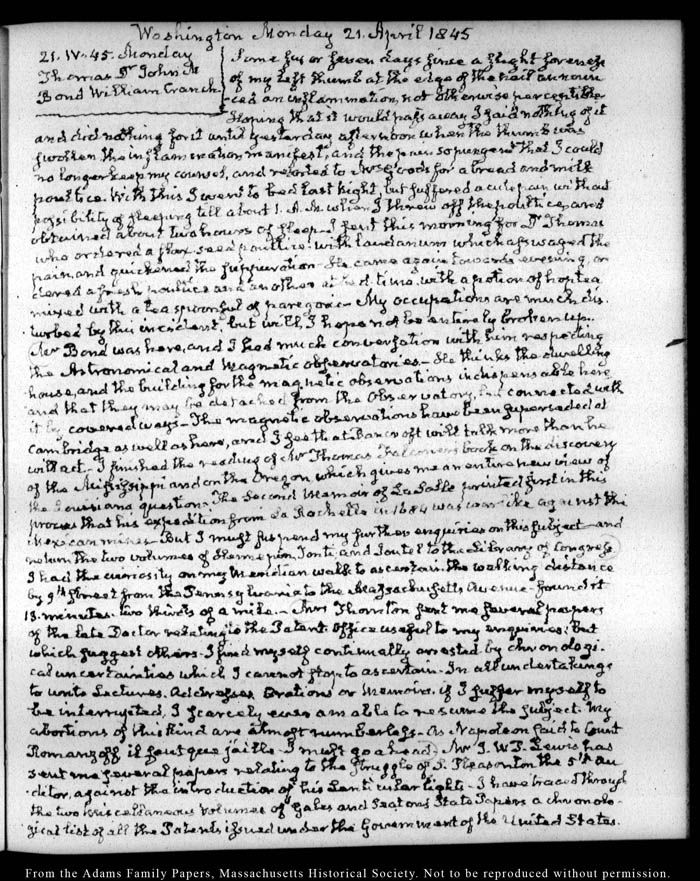 Washington Monday 21. April 1845
21. IV. 45. Monday
Thomas Dr John M
Bond William Cranch
Some six or seven days since a slight soreness
of my left thumb at the edge of the nail announ
ced an inflammation, not otherwise perceptible
Hoping that it would pass away, I said nothing of it
and did nothing for it until yesterday afternoon when the thumb was
swollen the inflammation manifest, and the pain so pungent that I could
no longer keep my counsel, and resorted to for a bread and milk
poultice. With this I went to bed last night, but suffered acute pain without
possibility of sleeping till about 1. A.M. when I threw off the poultice, and
obtained about two hours of sleep. I sent this morning for Dr Thomas
who ordered a flax-seed poultice with laudanum which asswaged the
pain, and quickened the suppuration. He came again towards evening, or
dered a fresh poultice and another at bed-time, with a potion of hop tea
mixed with a tea spoonful of paregoric. My occupations are much dis
turbed by this incident, but will, I hope not be entirely broken up.
Mr Bond was here, and I had much conversation with him respecting
the Astronomical and Magnetic observatories. He thinks the dwelling
house, and the building for the magnetic observations indispensable here
and that they may be detached from the Observatory, but connected with
it by covered ways. The magnetic observations have been superseded at
Cambridge as well as here, and I see that Bancroft will talk more than he
will act. I finished the reading of Mr Thomas Falconer's book on the discovery
of the Mississippi and on the Oregon, which gives me an entire new view of
the Louisiana question. The Second Memoir of La Salle printed first in this
proves that his expedition from La Rochelle in 1684 was warlike against the
Mexican mines. But I must suspend my further enquiries on this subject and
return the two volumes of Hennepin, Tonti, and Joutel to the Library of Congress
I had the curiosity on my Meridian walk to ascertain the walking distance
by 9th Street from the Pennsylvania to the Massachusetts Avenue. found it
13. minutes. two thirds of a mile. Mrs Thornton sent me several papers
of the late Doctor relating to the Patent Office useful to my enquiries: but
which suggest others. I find myself continually arrested by chronologi-
cal uncertainties which I cannot stop to ascertain. In all undertakings
to write Lectures. Addresses Orations or Memoirs, if I suffer myself to
be interrupted, I scarcely ever am able to resume the subject. My
abortions of this kind are almost numberless. As Napoleon said to Count
Romanzoff il faut que jaille. I must go ahead. Mr I. W. P. Lewis has
sent me several papers relating to the struggle of S. Pleasonton the 5th Au
ditor, against the introduction of his Lenticular lights. I have traced through
the two Miscellaneous Volumes of Gales and Seatons State Papers a chronolo-
gical list of all the Patents issued under the Government of the United States.
From the Adams Family Papers, Massachusetts Historical Society. Not to be reproduced without permission.